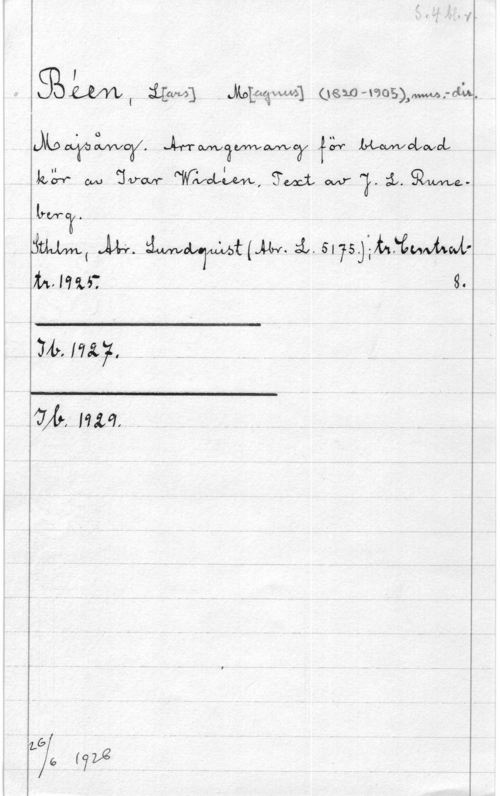 S. 4 bl. r.
Béen, L[ars] M[agnus] (1820-1905), mus.-dir.
Majsång. Arrangemang för blandad
kör av Ivar Widéen. Text av J. L. Rune-
berg.
Sthlm, Abr. Lundquist (Abr. L. 5175.); tr. Central-
tr. 1925. 8.
Ib. 1927.
Ib. 1929.
26/6 1926